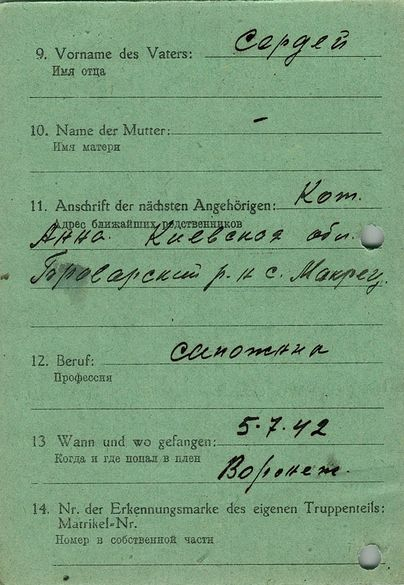 9. Vorname des Vaters: Сергей
Имя отца
10. Name der Mutter: –
Имя матери
11. Anschrift der nächsten Angehörigen: Кот.
Адрес ближайших родственников
Анна. Киевская обл.
Броварский р-н с. Макрец
12. Beruf: сапожник
Профессия
13 Wann und wo gefangen: 5.7.42
Когда и где попал в плен
Воронеж.
14. Nr. der Erkennungsmarke des eigenen Truppenteils:
Matrikel-Nr.
Номер в собственной части